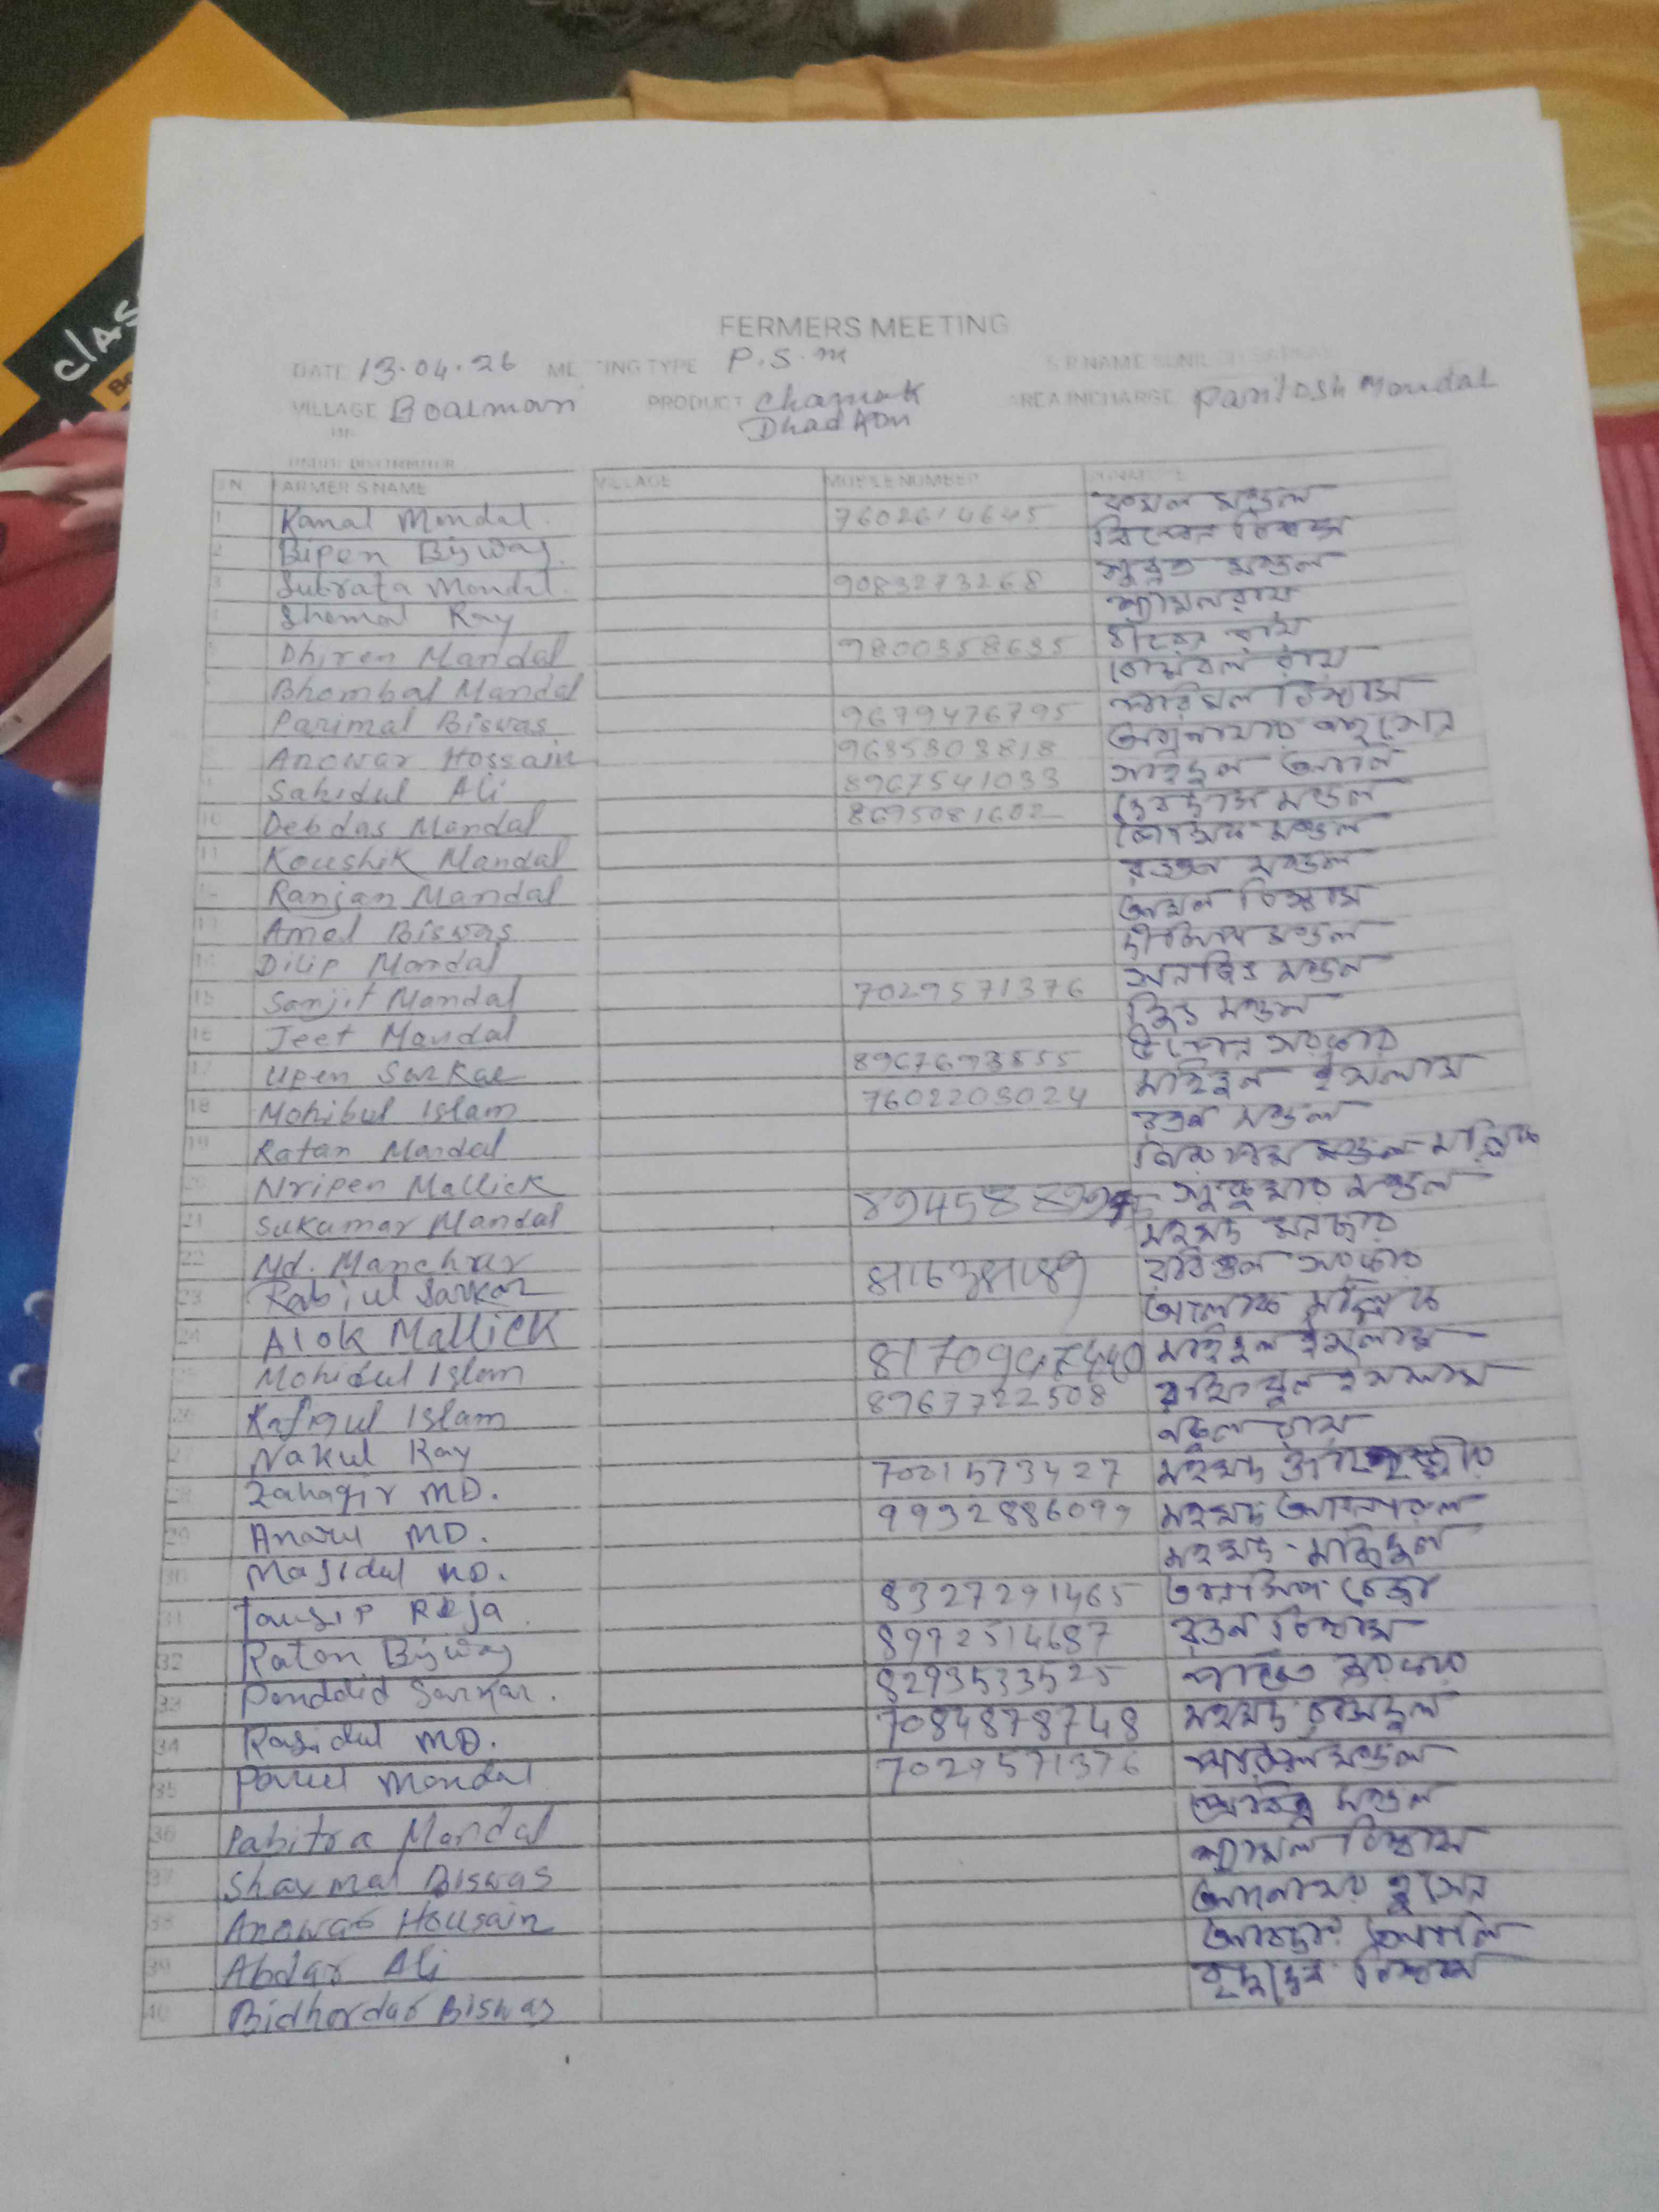 clAS
FERMERS MEETING
DATE 13.04.26 MEETING TYPE P.S.M S R NAME
VILLAGE Boalmari PRODUCT Chamak AREA INCHARGE Paritosh Mondal
SN FARMER S NAME VILLAGE MOBILE NUMBER SIGNATURE
1 Kamal Mondal 7602614645 কমল মন্ডল
2 Bipen Biswas বিপেন বিশ্বাস
3 Subrata Mondal 9083273268 সুব্রত মন্ডল
Shamal Ray শ্যামল রায়
Dhiren Mandal 9800358635 ধীরেন রায়
Bhombal Mandal ভোম্বল রায়
Parimal Biswas 9679476795 পরিমল বিশ্বাস
Anowar Hossain 9635303818
Sahidul Ali 8967541033 সহিদুল আলি
10 Debdas Mandal 8695081602 দেবদাস মন্ডল
11 Koushik Mandal মন্ডল
Ranjan Mandal রঞ্জন মন্ডল
13 Amal Biswas অমল বিশ্বাস
14 Dilip Mandal মন্ডল
15 Sanjit Mandal 7029571376 মন্ডল
16 Jeet Mandal জিত মন্ডল
17 Upen Sarkar 8967693555 উপেন সরকার
18 Mohibul Islam 7602203024 ইসলাম
19 Ratan Mandal রতন মন্ডল
20 Nripen Mallick
21 Sukumar Mandal সুকুমার মন্ডল
22 Md. মহম্মদ
23 Rabiul Sarkar রবিউল সরকার
24 Alok Mallick আলোক মল্লিক
25 Mohidul Islam মহিদুল ইসলাম
26 Rafiqul Islam 8967722508 রফিকুল ইসলাম
27 Nakul Ray নকুল রায়
28 Zahagir MD. 7001573427 মহম্মদ
29 Anarul MD. 9932886099 মহম্মদ আনারুল
30 Majidul MD. মহম্মদ - মজিদুল
31 Tousip Reja 8327291465 রেজা
32 Raton Biswas 8972514687 রতন বিশ্বাস
33 Sarkar. 8293533525 সরকার
34 Rasidul MD. 7084878748 মহম্মদ রাসিদুল
35 Parul Mondal 7029571376 পারুল মন্ডল
36 Pabitra Mandal পবিত্র মন্ডল
37 Shaymal Biswas শ্যামল বিশ্বাস
38 Anowar Housain আনোয়ার হুসেন
39 Abdar Ali আবদার আলি
40 Biswas বিশ্বাস